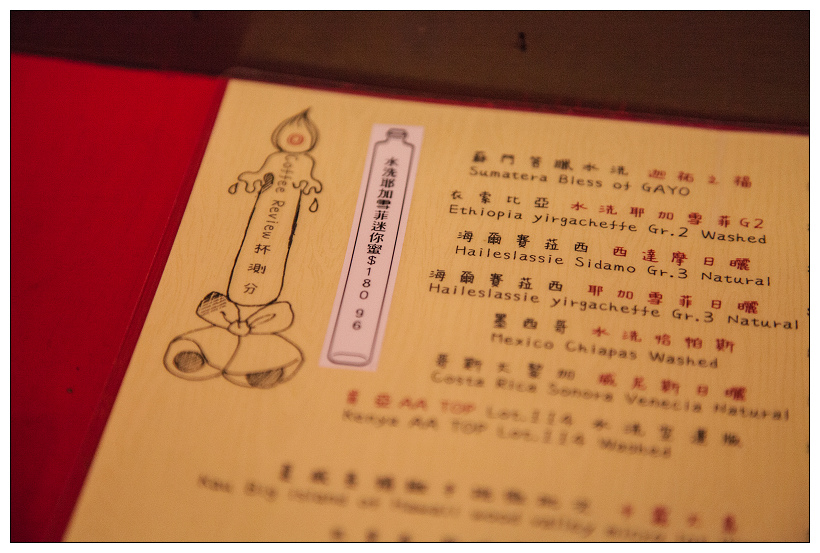 Coffee Review 杯測分
水洗耶加雪菲迷你蜜$180 96
蘇門答臘水洗 迦祐之福
Sumatera Bless of GAYO
衣索比亞 水洗耶加雪菲G2
Ethiopia yirgacheffe Gr.2 Washed
海爾賽菈西 西達摩日曬
Haileslassie Sidamo Gr.3 Natural
海爾賽菈西 耶加雪菲日曬
Haileslassie yirgacheffe Gr.3 Natural
墨西哥 水洗恰帕斯
Mexico Chiapas Washed
哥斯大黎加 威尼斯日曬
Costa Rica Sonora Venecia Natural
AA TOP Lot.114 水洗
Kenya AA TOP Lot.114 Washed
Kau Big island of Hawaii wood valley